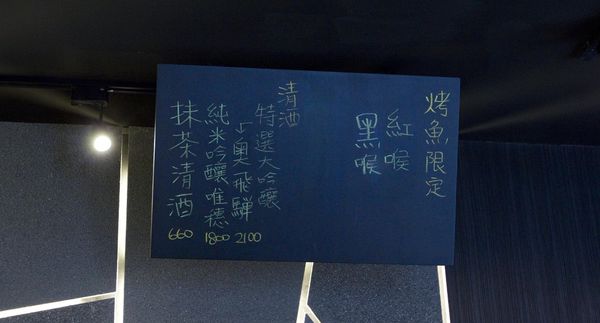 烤魚限定
紅喉
黑喉
清酒
特選大吟釀
↓奧飛驒
2100
純米吟釀唯穗
1800
抹茶清酒
660